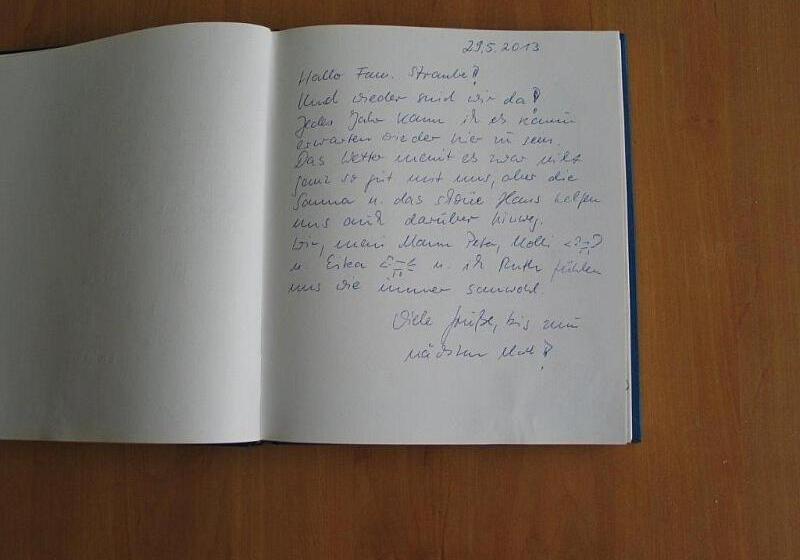 29.5.2013
Hallo Fam. Straube!
Und wieder sind wir da!
Jedes Jahr kann ich es kaum
erwarten wieder hier zu sein.
Das Wetter meint es zwar nicht
ganz so gut mit uns, aber die
Sauna u. das schöne Haus helfen
uns auch darüber hinweg.
Wir, mein Mann Peter, Molli
u. Eika u. ich Ruth fühlen
uns wie immer sauwohl.
Viele Grüße, bis zum
nächsten Mal!